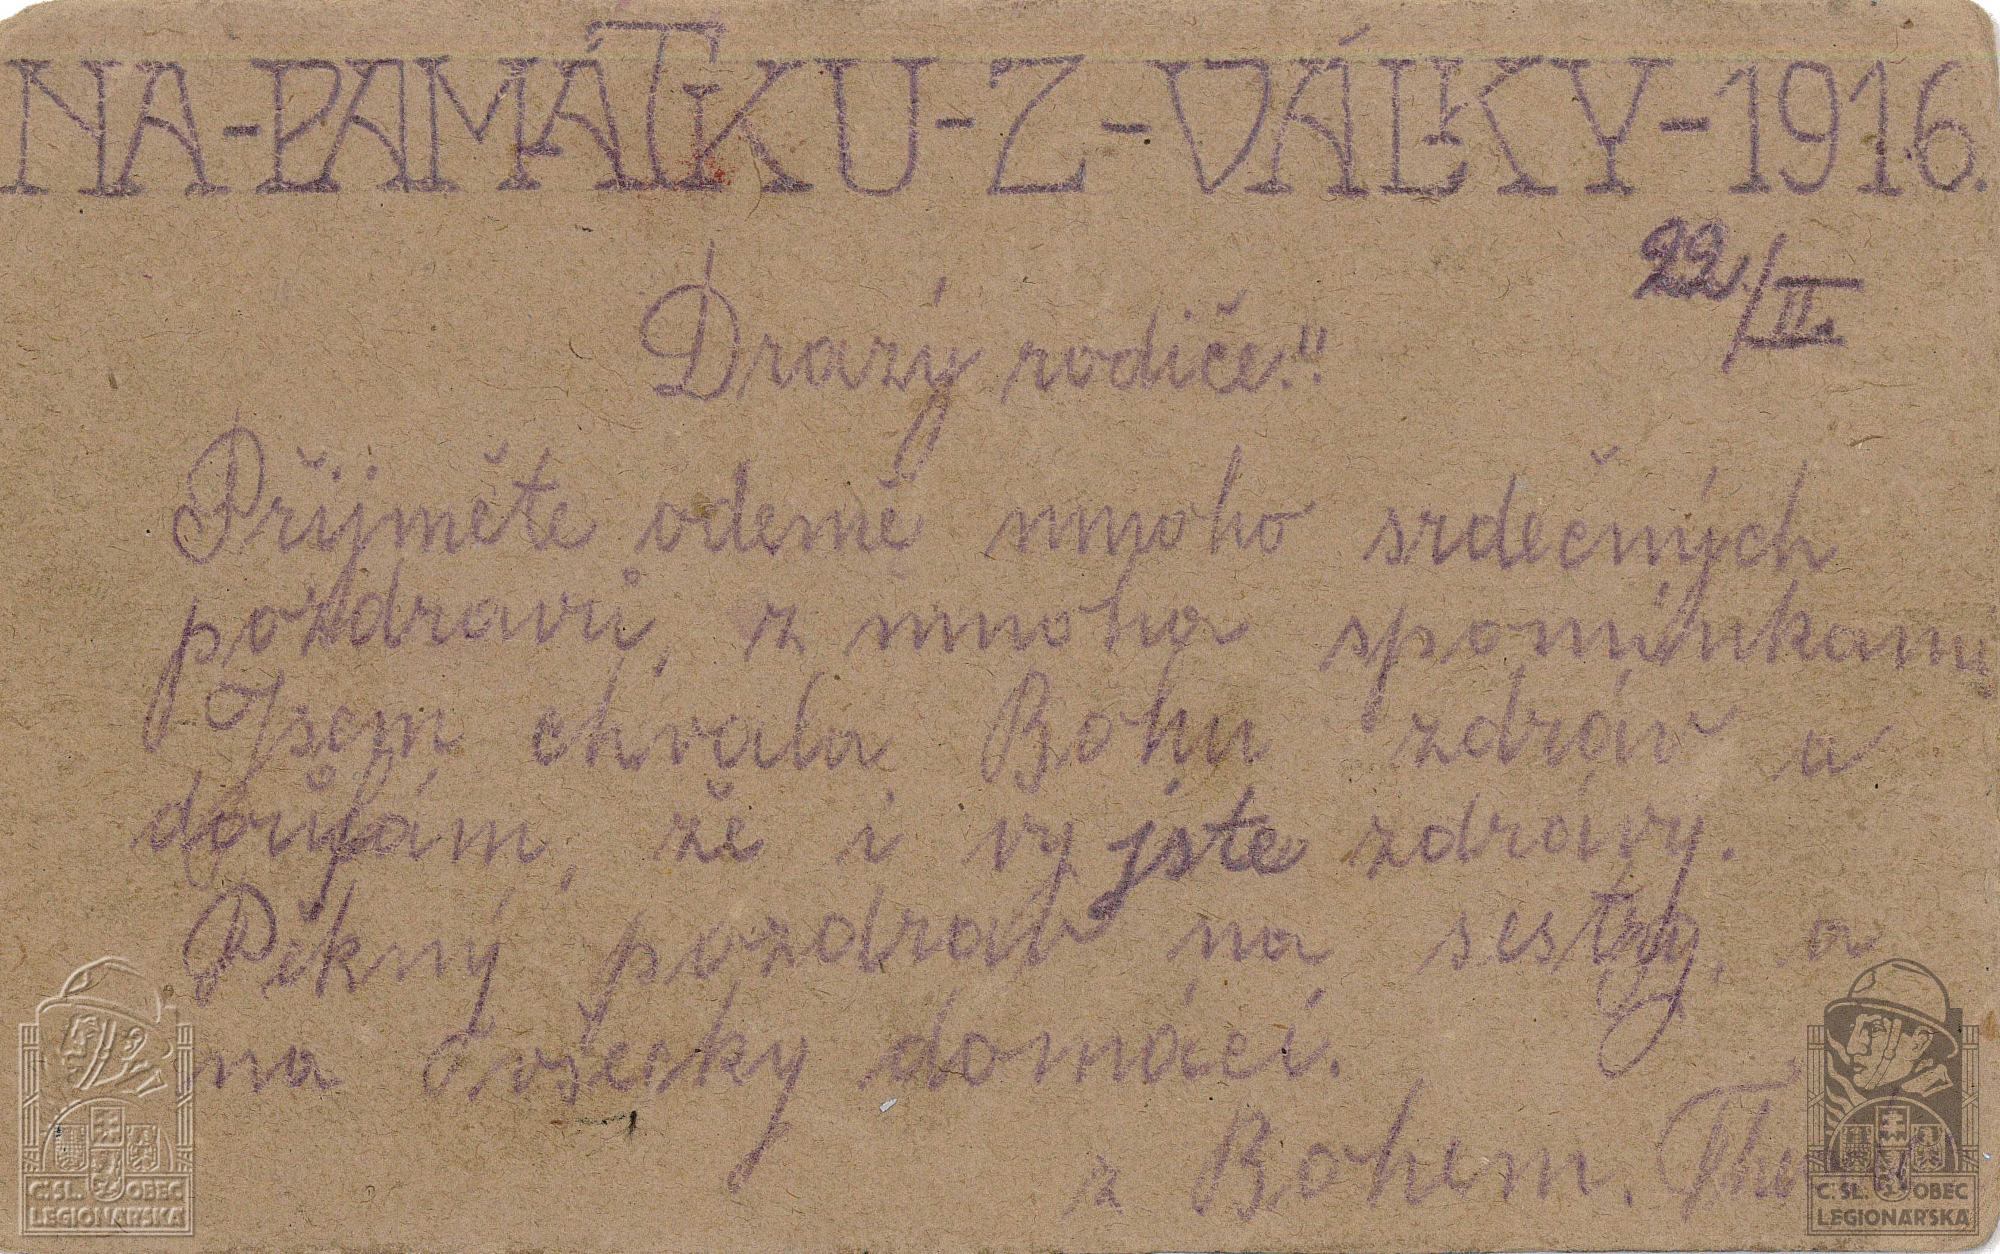 NA-PAMÁTKU-Z-VÁLKY-1916.
22/II.
Drazý rodiče!!
Přijměte odemě mnoho srdečných
pozdravů, z mnoha spomínkamy
Jsem chvala Bohu zdráv a
doufám, že i vy jste zdrávy.
Pěkný pozdrav na sestry, a
na všecky domácí.
z Bohem.
C. SL. OBEC
LEGIONÁŘSKÁ
C. SL. OBEC
LEGIONÁŘSKÁ